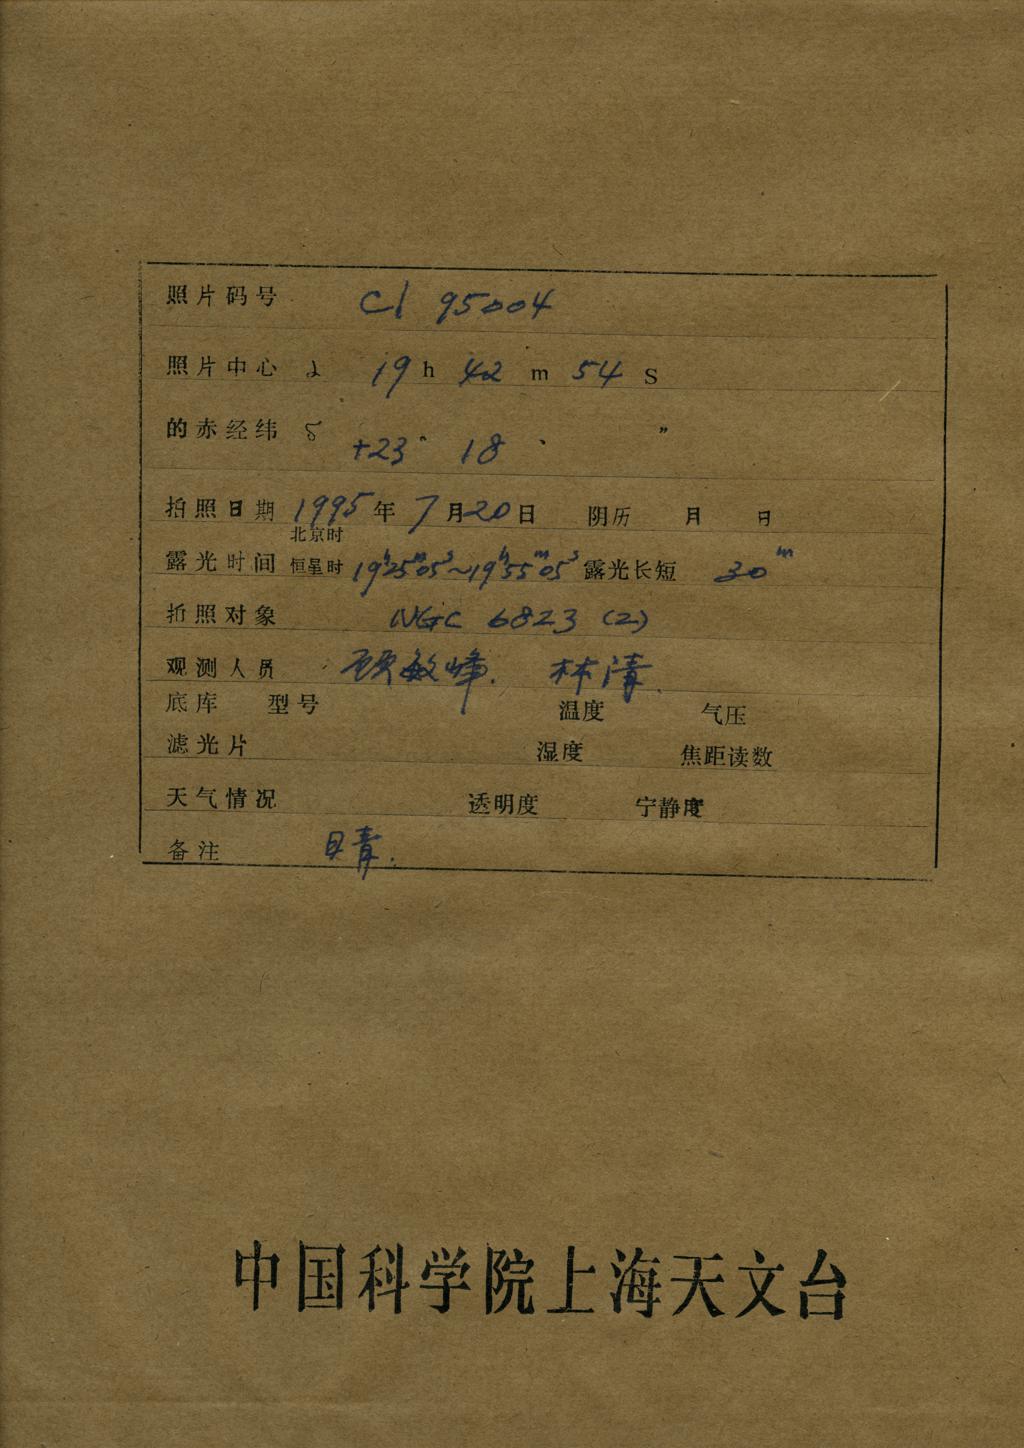 照片码号 Cl 95004
照片中心 α 19 h 42 m 54 S
的赤经纬 δ +23° 18 ′ ″
拍照日期 1995年 7月20日 阴历 月 日
北京时
露光时间 恒星时 19h25m05s~19h55m05s 露光长短 30m
拍照对象 NGC 6823 (2)
观测人员 顾敏峰. 林清.
底库 型号 温度 气压
滤光片 湿度 焦距读数
天气情况 透明度 宁静度
备注 晴.
中国科学院上海天文台